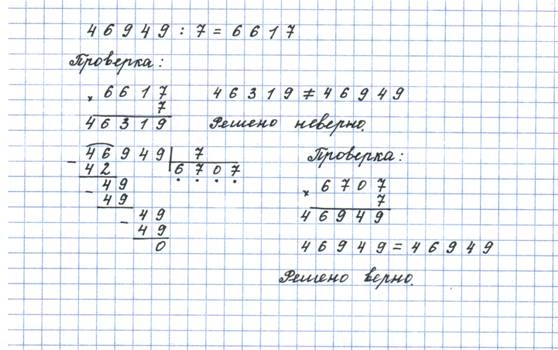 46949 : 7 = 6617
Проверка:
× 6617
7
46319
46319 ≠ 46949
Решено неверно.
- 46949 | 7
42 6707
- 49
49
- 49
49
0
Проверка:
× 6707
7
46949
46949 = 46949
Решено верно.